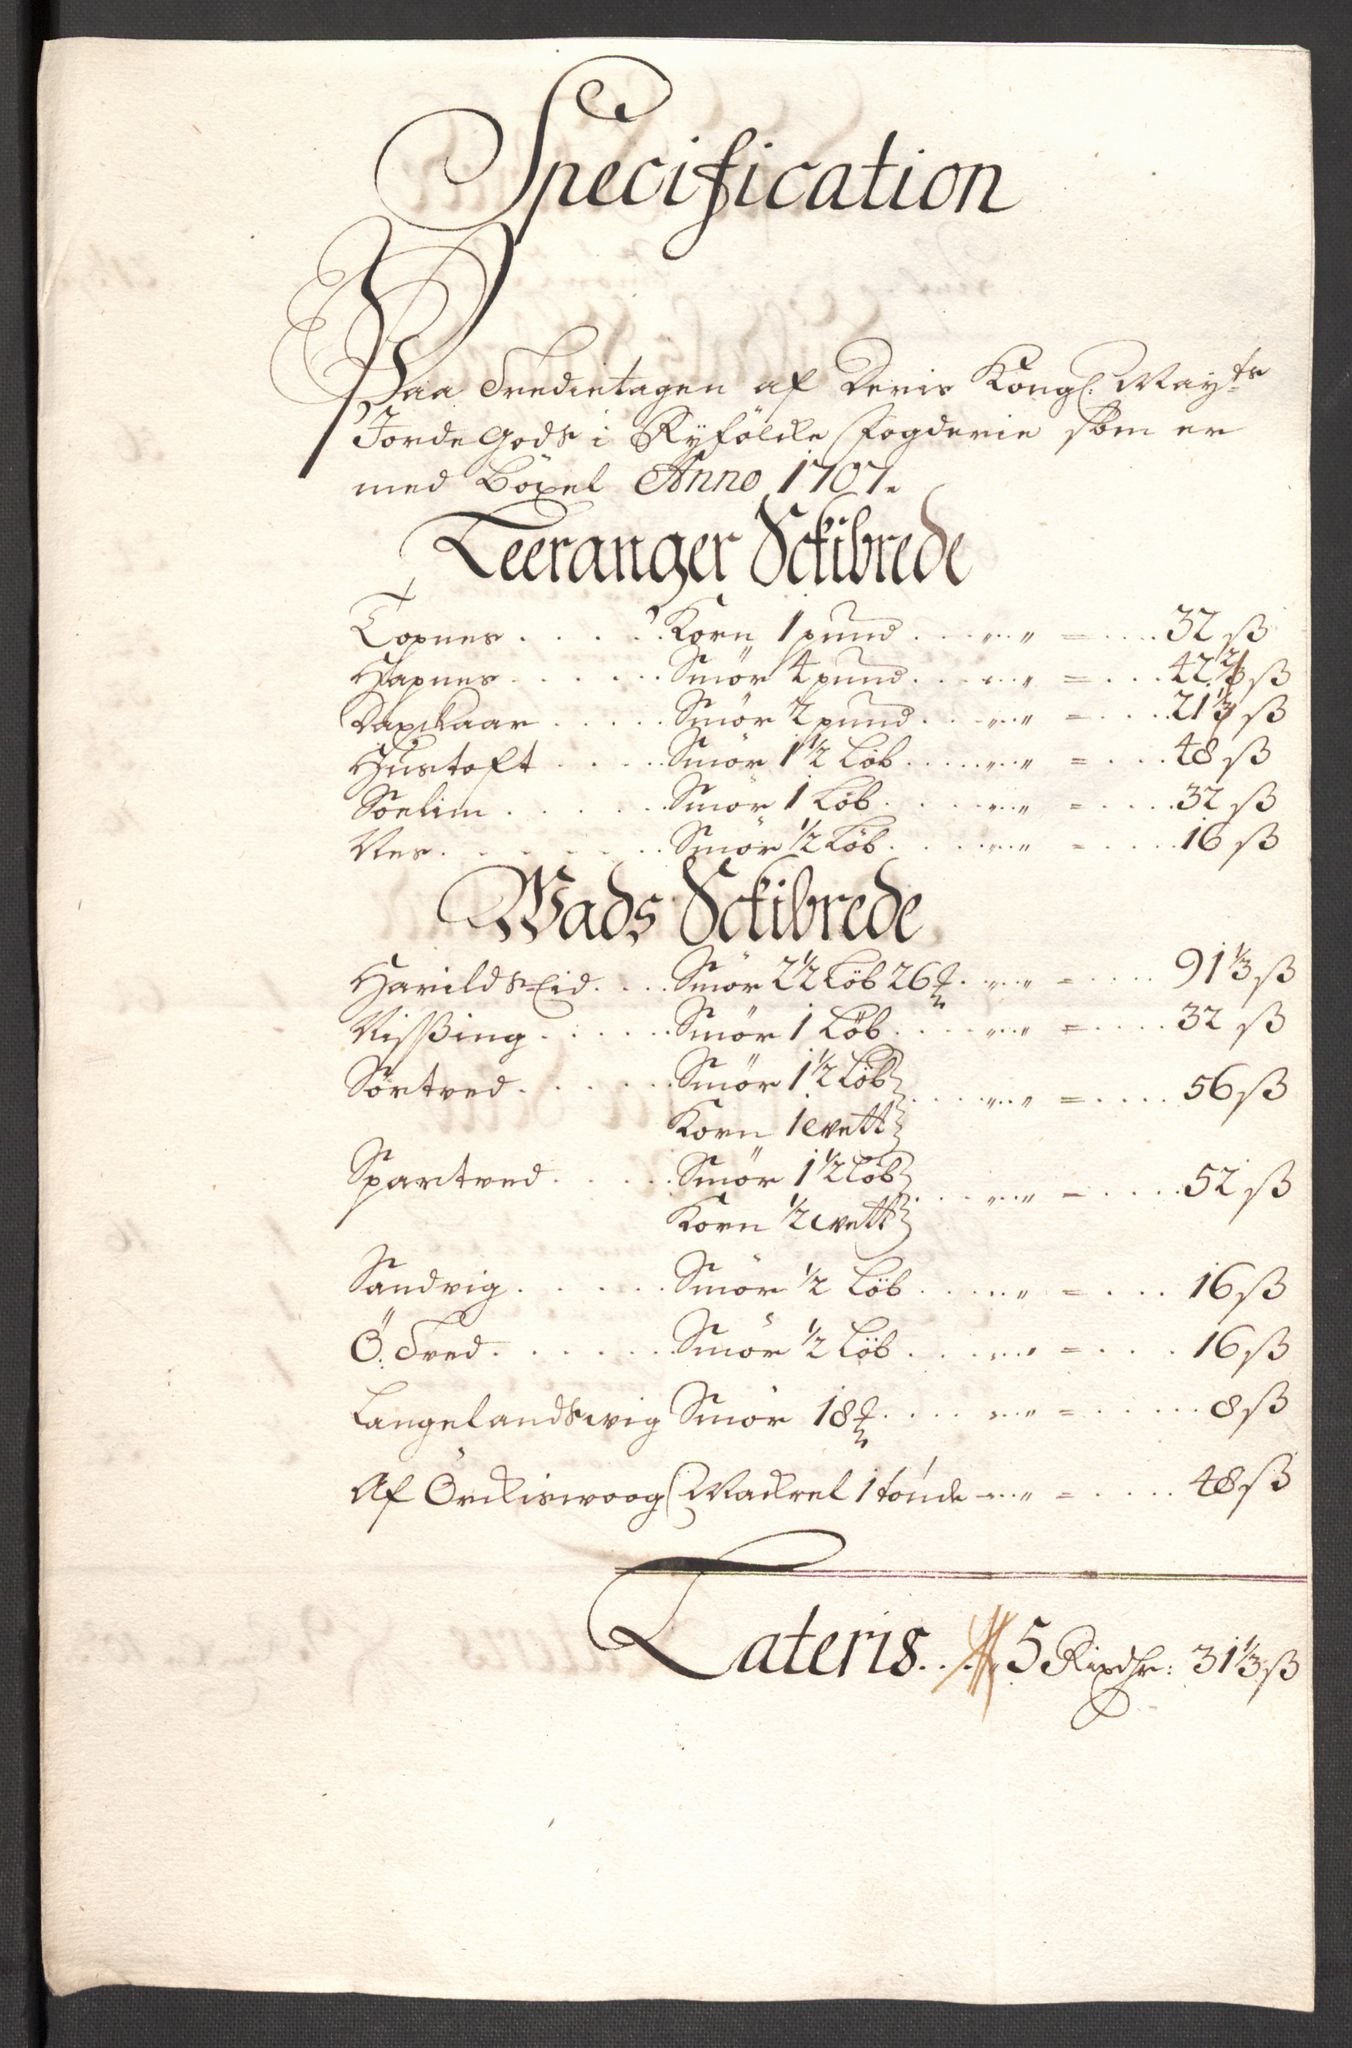 Specification
Paa Tredietagen af Deris Kongl: Mayts
Jorde Gods i Ryfölcke fogderie som er
med Böxel Anno 1707.
Teeranger Sckibrede
Topnes . . . . . Korn 1 pund . . . „ . „ = . . . . 32 ß
Hapnes . . . . . . Smör 4 pund . . . „ . „ = . . . 42 2/3 ß
Daxckaar . . . . . Smör 2 pund . . . „ . „ = . . . . 21 1/3 ß
Hustoft . . . . Smör 1 1/2 Löb . . . . „ . „ = . . . 48 ß
Soelim . . . . . . Smör 1 Löb . . . . „ . „ = . . . . 32 ß
Nes . . . . . . . Smör 1/2 Löb . . . . „ . „ = . . . . 16 ß
Wads Sckibrede
Harilds Eid . . . . Smör 2 1/2 Löb 26 ℔ . „ . „ = . . . . 91 1/3 ß
Nissing . . . . . . Smör 1 Löb . . . . „ . „ = . . . . 32 ß
Sörtved . . . . . . Smör 1 1/2 Löb . . . . „ . „ = . . . . 56 ß
Korn 1 vett
Spartved . . . . . Smör 1 1/2 Löb . . . . „ . „ = . . . . 52 ß
Korn 1/2 vett
Sandvig . . . . . . Smör 1/2 Löb . . . . „ . „ = . . . 16 ß
Ö. Tved . . . . . . Smör 1/2 Löb . . . . „ . „ = . . . 16 ß
Langelandswig Smör 18 ℔ . . . . „ . „ = . . . . . 8 ß
Af Örckiswoog Mackrel 1 tönde „ . „ = . . . . 48 ß
Lateris . . . 5 Rixdhr: 31 1/3 ß